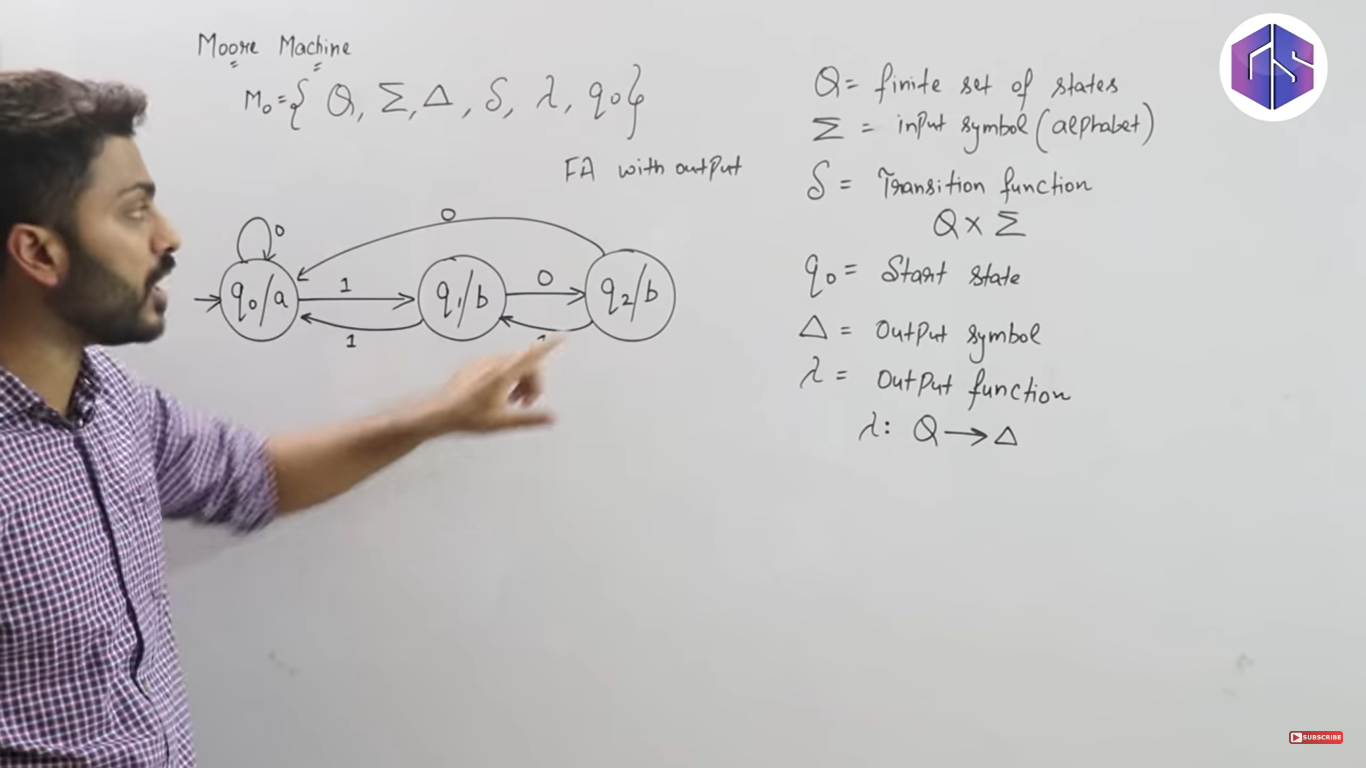 Moore Machine
M₀ = { Q, Σ, Δ, δ, λ, q₀ }
FA with output
0
0
q₀/a
1
q₁/b
0
q₂/b
1
Q = finite set of states
Σ = input symbol (alphabet)
δ = Transition function
Q × Σ
q₀ = Start state
Δ = Output symbol
λ = Output function
λ: Q → Δ
SUBSCRIBE